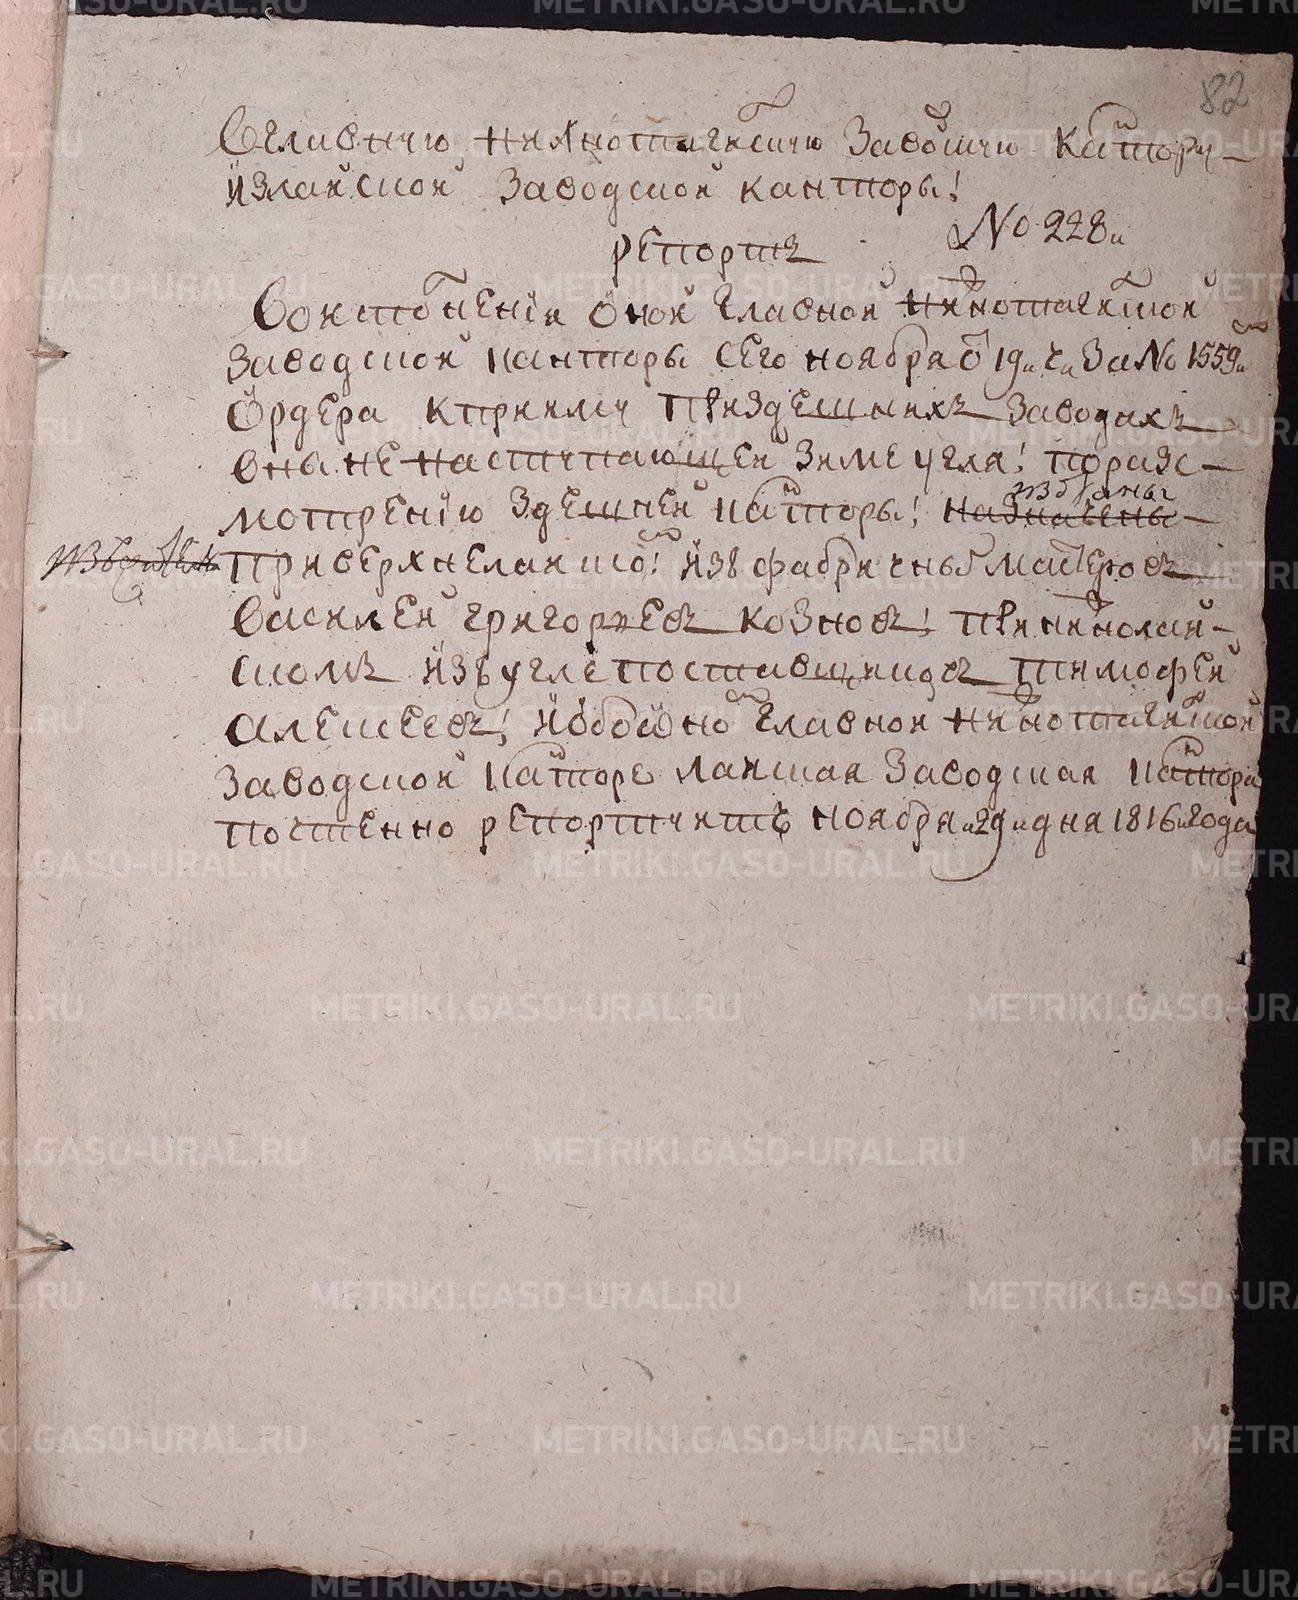 82
Вглавную нижнотагилскую заводскую кантору
излайской заводской канторы!
№ 228й
репортъ
Воисполнении оной главной нижнотагилской
заводской канторы сего ноября от 19го ч. за № 1559м
ордера кприиму призделнихъ заводахъ
вныненаступающей зиме угля! поразс-
мотрению здешней канторы! назначены
избраны
приверхнелайскомъ! изъ фабричныхъ мастеровъ
Василей григорьевъ козновъ! принижнолай-
скомъ изъ углепоставщиковъ тимофей
алексеевъ! и обоном главной нижнотагилской
заводской канторе лайская заводская кантора
почтенно репортуитъ ноября 29 дня 1816 года
METRIKI.GASO-URAL.RU